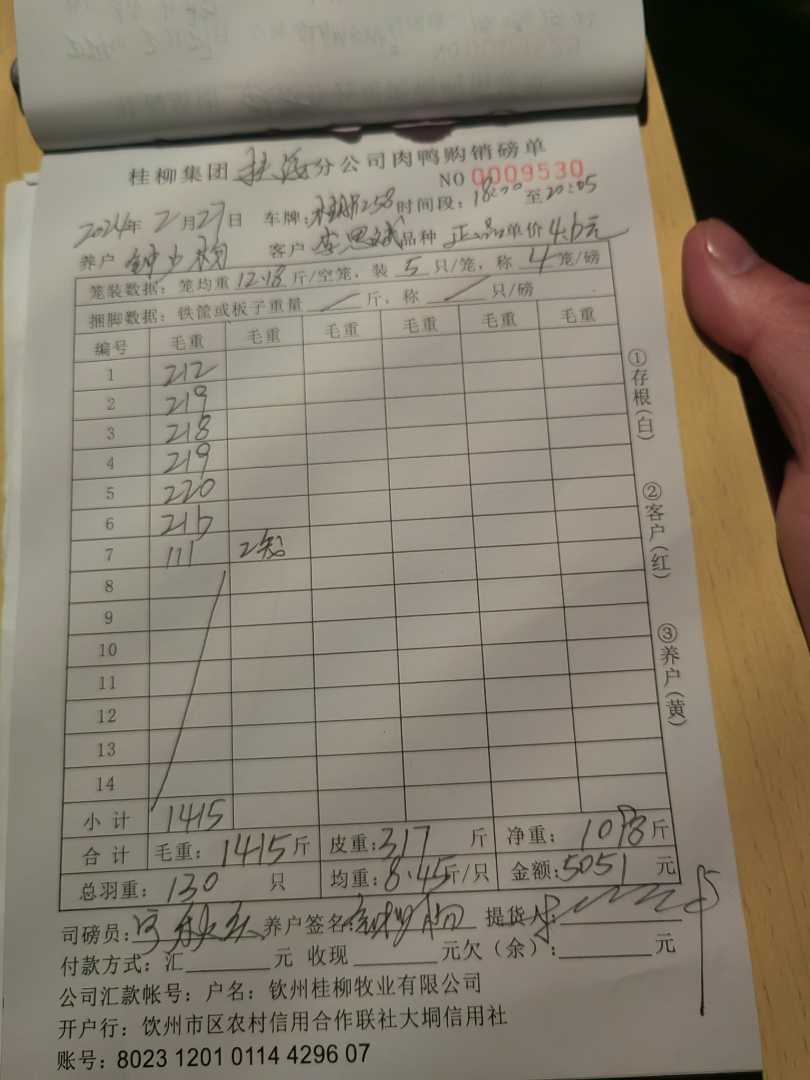 桂柳集团 分公司肉鸭购销磅单
NO 0009530
2024年 2月27日 车牌: 258 时间段: 18:00 至20:05
养户 钟少 客户 李思斌 品种 正品 单价 4.6元
笼装数据: 笼均重 12.18 斤/空笼, 装 5 只/笼, 称 4 笼/磅
捆脚数据: 铁筐或板子重量 / 斤, 称 / 只/磅
编号 毛重 毛重 毛重 毛重 毛重 毛重
1 212
2 219
3 218
4 219
5 220
6 216
7 111 2笼
8
9
10
11
12
13
14
小计 1415
合计 毛重: 1415斤 皮重: 317 斤 净重: 1098斤
总羽重: 130 只 均重: 8.45斤/只 金额: 5051 元
司磅员: 养户签名: 提货人:
付款方式: 汇 元 收现 元欠(余): 元
公司汇款帐号: 户名: 钦州桂柳牧业有限公司
开户行: 钦州市区农村信用合作联社大垌信用社
账号: 8023 1201 0114 4296 07
①存根(白)
②客户(红)
③养户(黄)